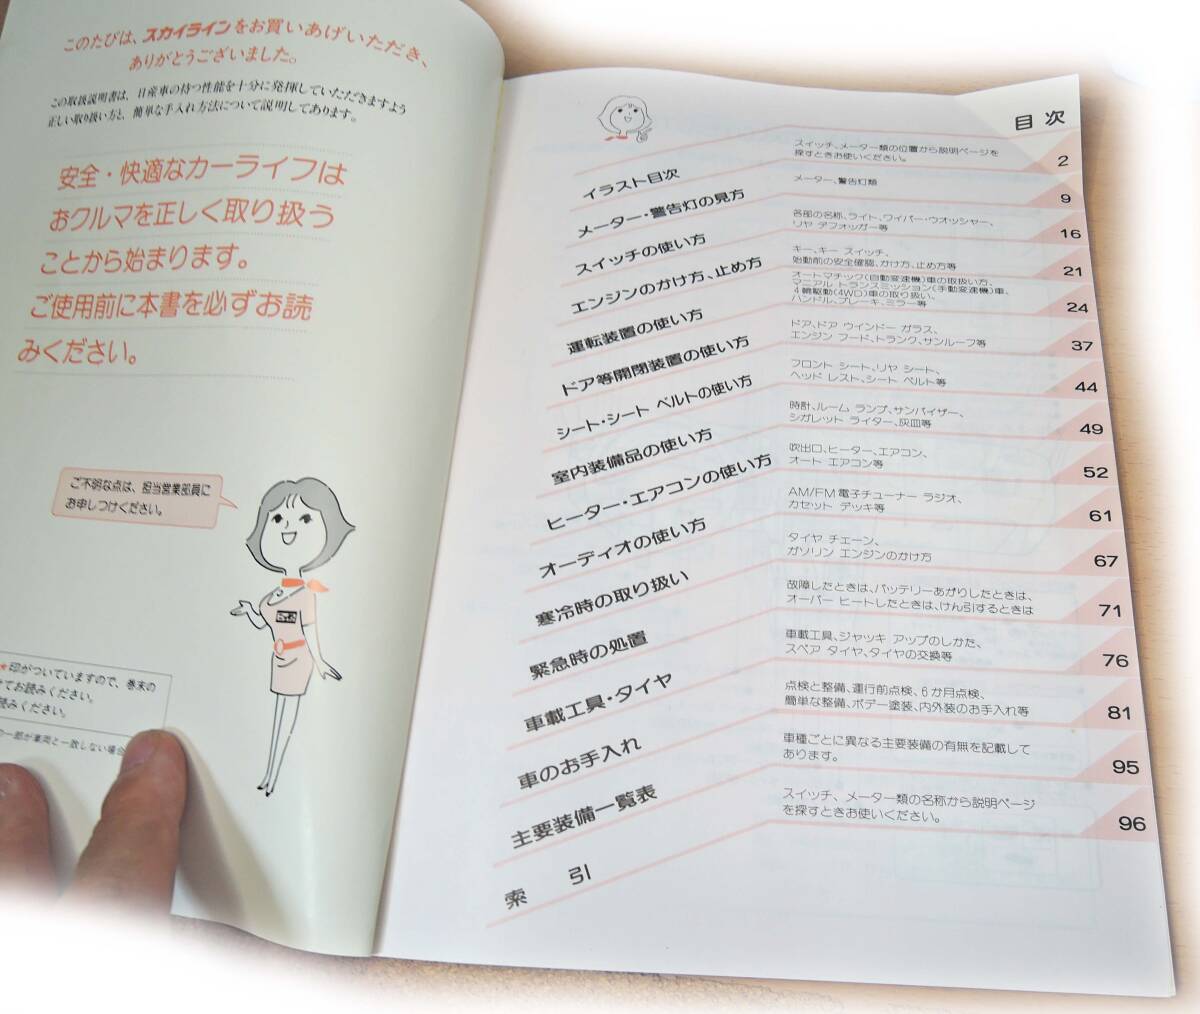 このたびは、スカイラインをお買いあげいただき、
ありがとうございました。
この取扱説明書は、日産車の持つ性能を十分に発揮していただきますよう
正しい取り扱い方と、簡単な手入れ方法について説明してあります。
安全・快適なカーライフは
おクルマを正しく取り扱う
ことから始まります。
ご使用前に本書を必ずお読
みください。
ご不明な点は、担当営業部員に
お申しつけください。
★印がついていますので、巻末の
てお読みください。
読みください。
の一部が車両と一致しない場合
目次
イラスト目次
スイッチ、メーター類の位置から説明ページを
探すときお使いください。
2
メーター・警告灯の見方
メーター、警告灯類
9
スイッチの使い方
各部の名称、ライト、ワイパー・ウオッシャー、
リヤ デフォッガー等
16
エンジンのかけ方、止め方
キー、キー スイッチ、
始動前の安全確認、かけ方、止め方等
21
運転装置の使い方
オートマチック(自動変速機)車の取扱い方、
マニアル トランスミッション(手動変速機)車、
4輪駆動(4WD)車の取り扱い、
ハンドル、ブレーキ、ミラー等
24
ドア等開閉装置の使い方
ドア、ドア ウインドー ガラス、
エンジン フード、トランク、サンルーフ等
37
シート・シート ベルトの使い方
フロント シート、リヤ シート、
ヘッド レスト、シート ベルト等
44
室内装備品の使い方
時計、ルーム ランプ、サンバイザー、
シガレット ライター、灰皿等
49
ヒーター・エアコンの使い方
吹出口、ヒーター、エアコン、
オート エアコン等
52
オーディオの使い方
AM/FM電子チューナー ラジオ、
カセット デッキ等
61
寒冷時の取り扱い
タイヤ チェーン、
ガソリン エンジンのかけ方
67
緊急時の処置
故障したときは、バッテリーあがりしたときは、
オーバー ヒートしたときは、けん引するときは
71
車載工具・タイヤ
車載工具、ジャッキ アップのしかた、
スペア タイヤ、タイヤの交換等
76
車のお手入れ
点検と整備、運行前点検、6か月点検、
簡単な整備、ボデー塗装、内外装のお手入れ等
81
主要装備一覧表
車種ごとに異なる主要装備の有無を記載して
あります。
95
索 引
スイッチ、メーター類の名称から説明ページ
を探すときお使いください。
96